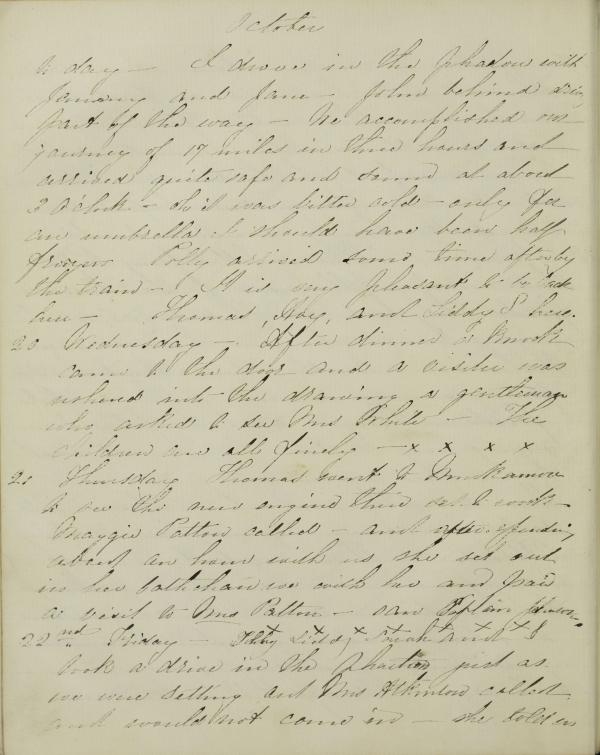 October
to day — I drove in the phaeton with
Jemmy and Jane — John behind
part of the way — We accomplished our
journey of 17 miles in three hours and
arrived quite safe and sound at about
3 o'clock — oh it was bitter cold — only for
an umbrella I should have been half
frozen Polly arrived some time after by
the train — It is very pleasant to be back
here — Thomas, and Liddy S here.
20 Wednesday — After dinner a knock
came to the door and a visiter was
ushered into the drawing a gentleman
who asked to see Mrs White — The
children are all finely — x x x x
21 Thursday Thomas went to
to see the new engine there set to work
Maggie Patton called — and after spending
about an hour with us she set out
in her bathchair we with her and paid
a visit to Mrs Patton — saw
22nd Friday — x x x x x Liddy, Sarah and I
took a drive in the Phaeton just as
we were setting out Mrs Atkinson called
and would not come in — she told us